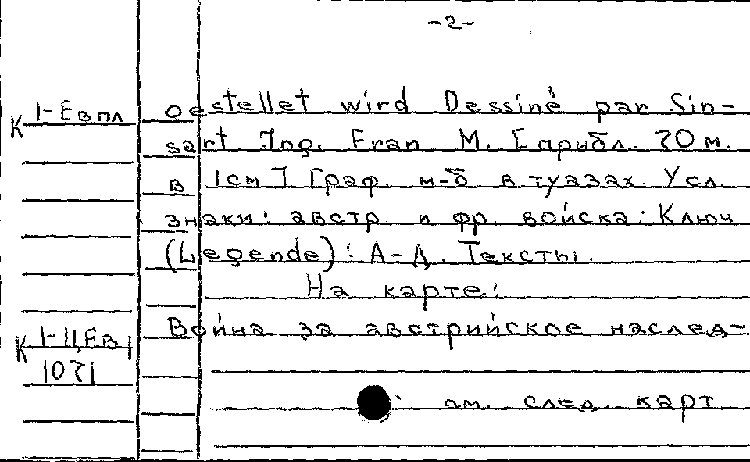 -2-
К 1-Евпл
oestellet wird Dessiné par Sin-
sart Ing. Fran M. [арибл. 70 м.
в 1см] Граф. м-б в туазах Усл.
знаки: австр. и фр. войска. Ключ
(Legende): А-Д. Тексты.
На карте:
Война за австрийское наслед-
К 1-II,Ев
1071
см. след. карт